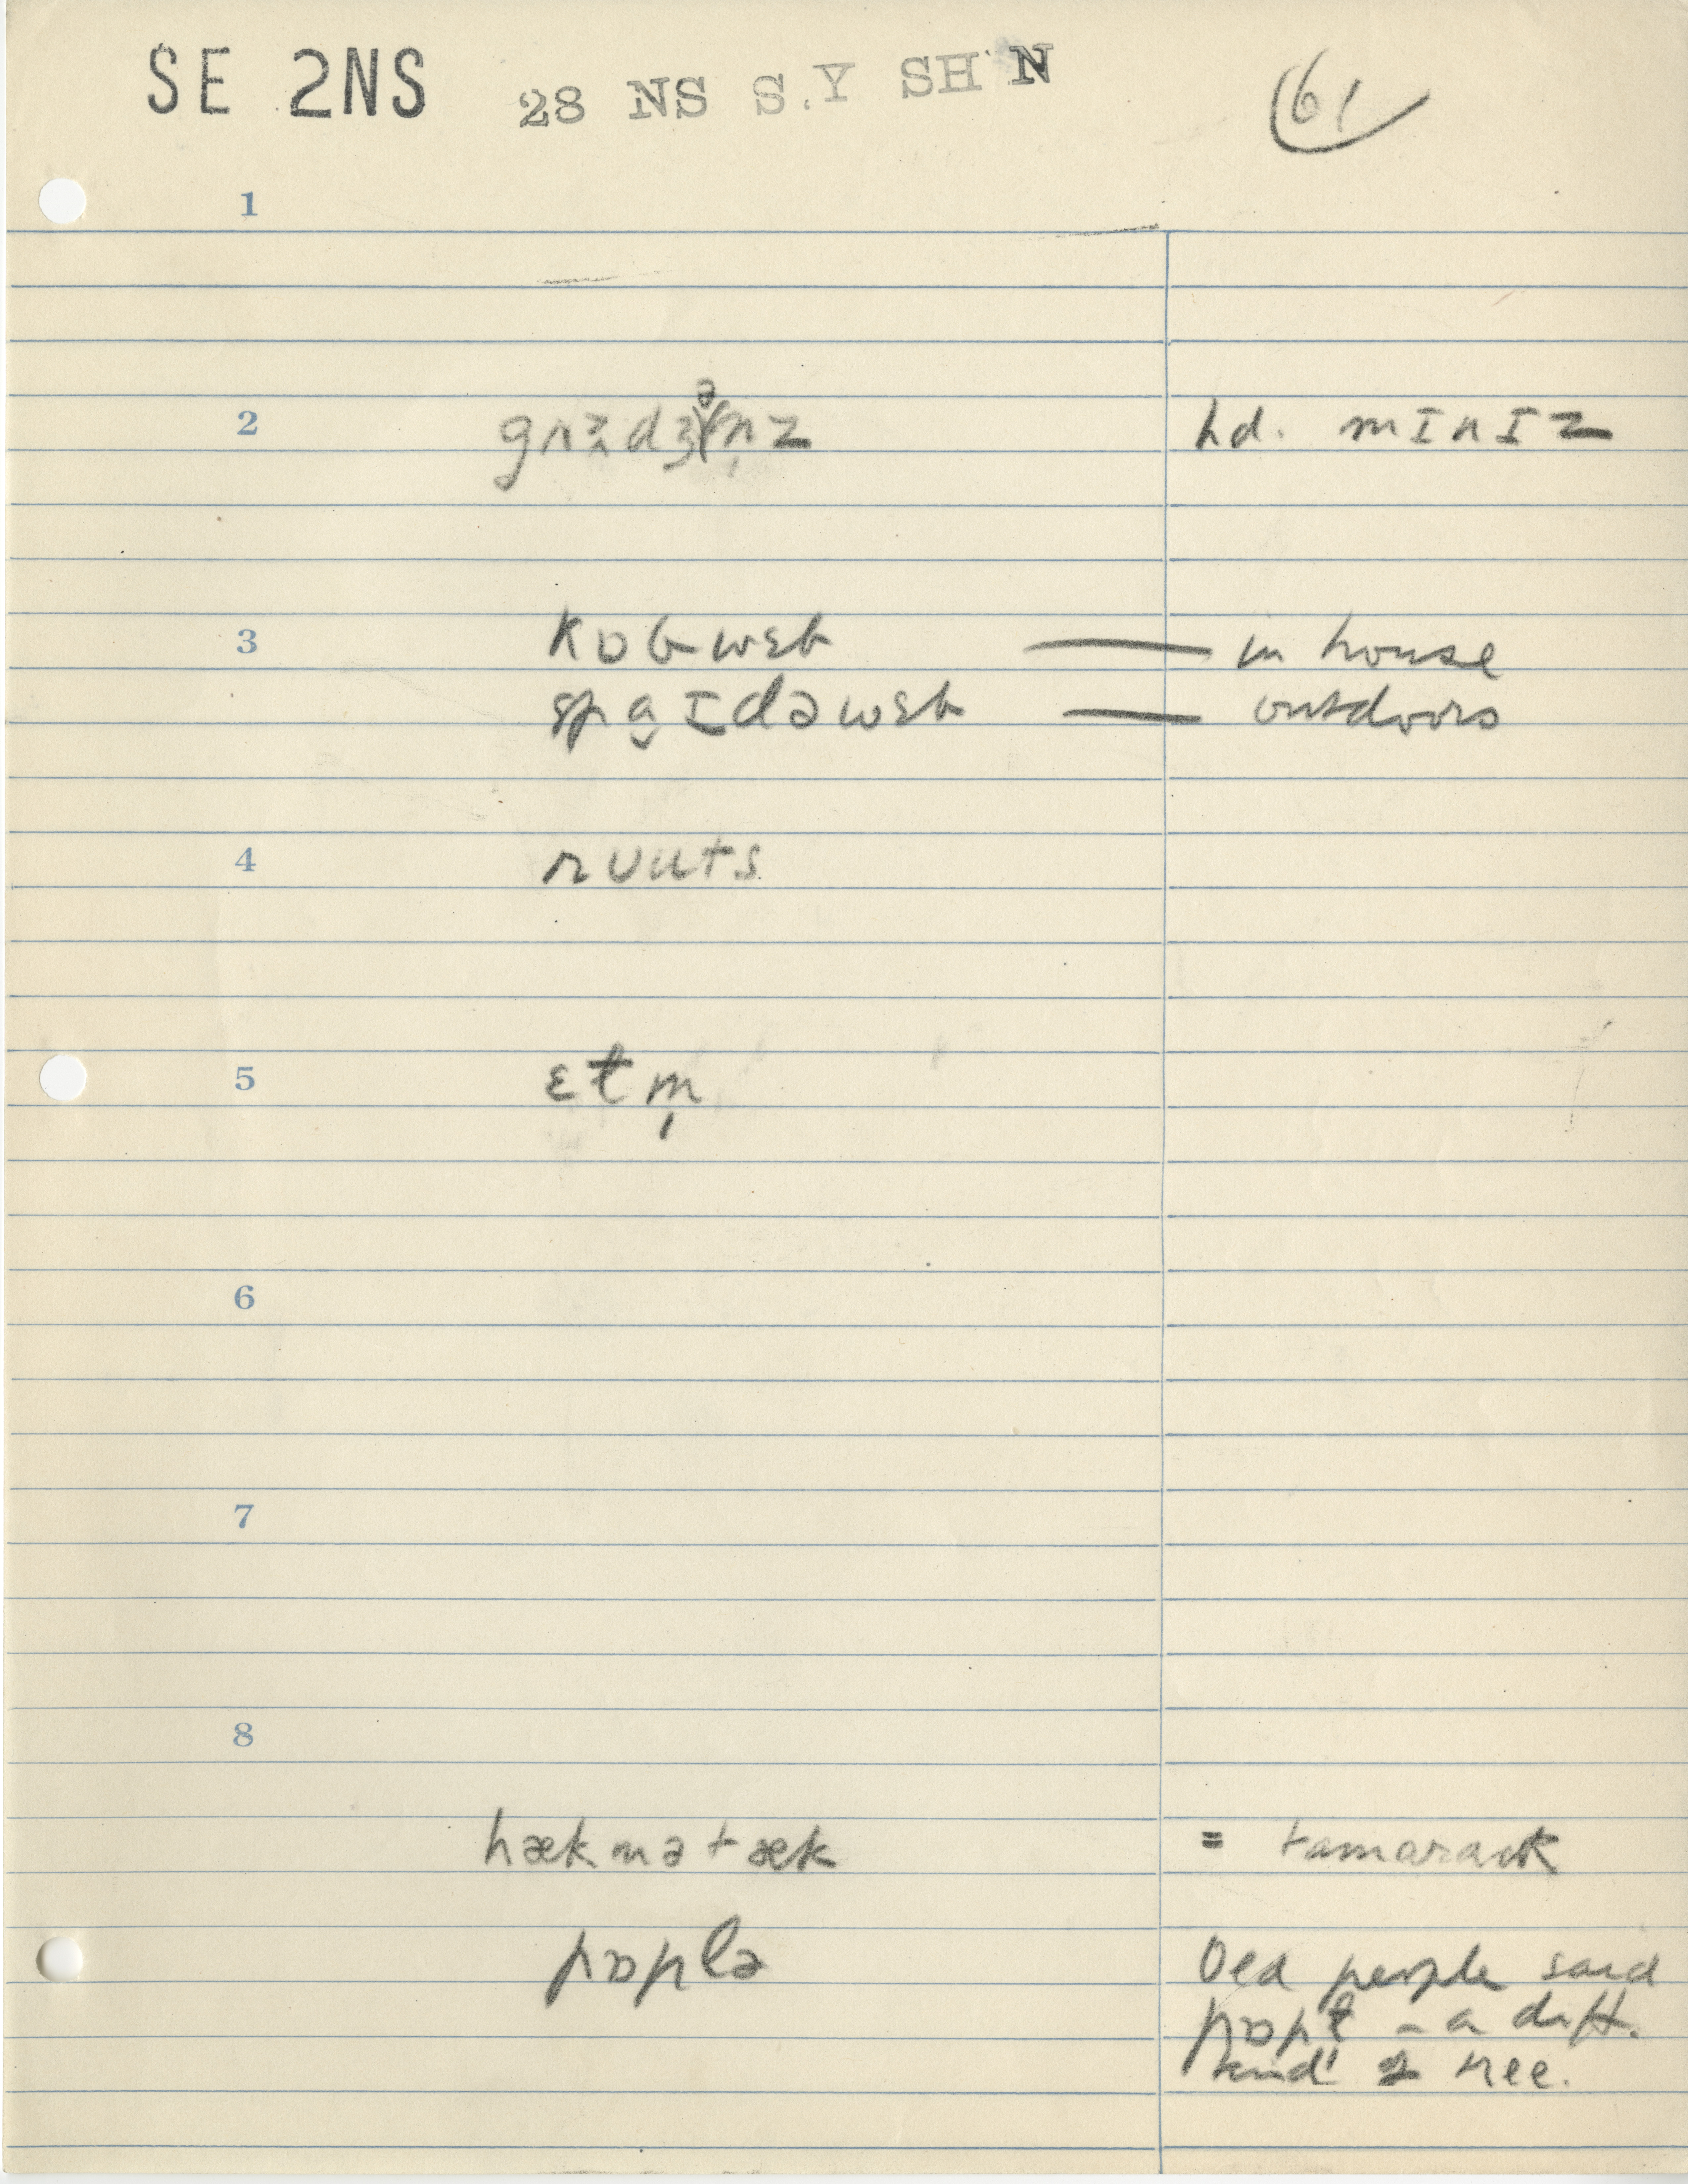 SE 2NS 28 NS S.Y SH N 61
1
2 hd. mɪnɪz
3 kɒbwɛb — in house
spaɪdəwɛb — outdoors
4 rʊuts
5 ɛɫm̩
6
7
8
hækmətæk = tamarack
pɒplə Old people said
pɒpɫ̩ - a diff.
kind tree.